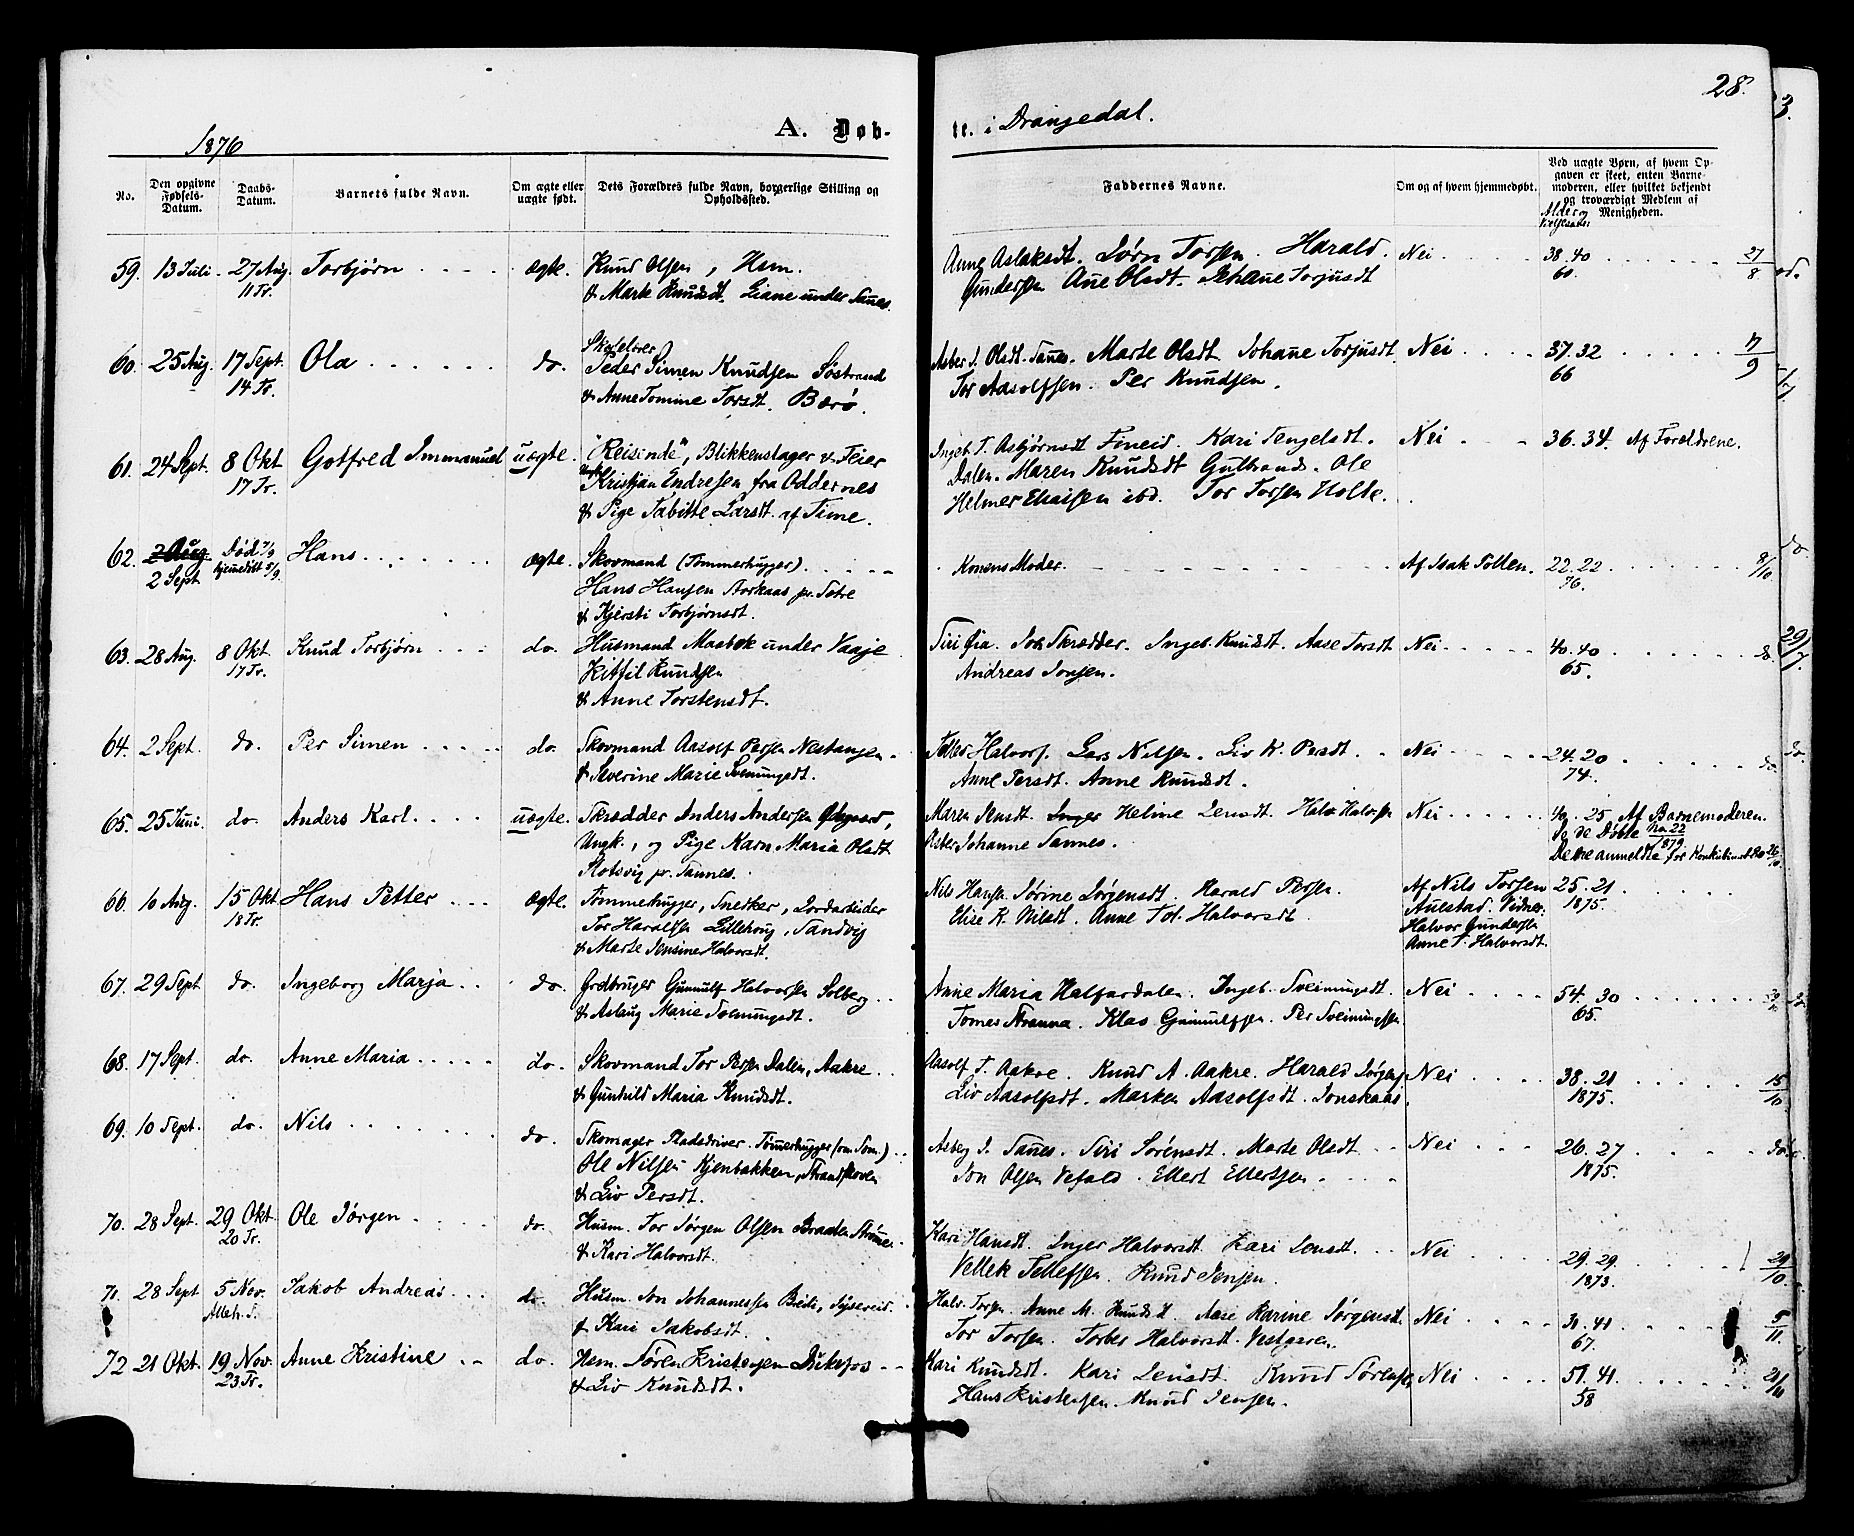 28.
1876
A. Døb-
te. i Drangedal.
No.
Den opgivne Fødsels-Datum.
Daabs-Datum.
Barnets fulde Navn.
Om ægte eller uægte født.
Dets Forældres fulde Navn, borgerlige Stilling og Opholdssted.
Faddernes Navne.
Om og af hvem hjemmedøbt.
Ved uægte Børn, af hvem Op-
gaven er skeet, enten Barne-
moderen, eller hvilket bekjendt
og troværdigt Medlem af
Menigheden.
59. 13 Juli. 27 Aug. Torbjørn ægte. Knud Olsen, Hsm. Anne Aslaksdt. Sørn Torsen. Harald Nei 38. 40 27/8
11 Tr. & Marte Knudsdt. Liane under Sanes. Gundersen Ane Olsdt. Johane Torjusdt 60.
60. 25 Aug. 17 Sept. Ola do. Skolelærer Olsdt. Sanes. Marte Olsdt Johane Torjusdt Nei 37. 32 17/9
14 Tr. Peder Simen Knudsen Søstrand Tor Aasolfsen. Per Knudsen. 66
& Anne Tomine Torsdt. Bærø.
61. 24 Sept. 8 Okt. Gotfred Immanuel uægte. "Reisinde", Blikkenslager & Feier Ingeb. T. Asbjørnsdt Fineid. Kari Tengelsdt. Nei 36. 34. Af Forældrene.
17 Tr. Kristjan Endresen fra Oddernes Dalen. Maren Knudsdt Gulbrands. Ole
& Pige Tabitte Larsdt. af Time. Helmer Eliaisen ibd. Tor Torsen Holte.
62. 2 Aug. Død 7/9 Hans ægte. Skovmand (Tømmerhugger) Konens Moder. Af Isak Tolten. 22. 22 8/10
2 Sept hjemedøbt 5/9. Hans Hansen pr. Totre 76.
& Kjersti Torbjørnsdt.
63. 28 Aug. 8 Okt. Knud Torbjørn do. Husmand Masbok under Vaaje Siri Øia. Joh. Skrædder. Ingeb. Knudsdt. Aase Torsdt Nei 40. 40 do.
17 Tr. Kittil Knudsen Andreas Jonsen. 65.
& Anne Torstensdt.
64. 2 Sept. do. Per Simen do. Skovmand Aasolf Persen Nestangen. Tellef Halvors. Lars Nilsen. Liv K. Persdt. Nei 24. 20 do.
& Severine Marie Sveinungsdt. Anne Persdt. Anne Knudsdt. 74.
65. 25 Juni. do. Anders Karl. uægte. Skrædder Anders Andersen, Maren Jensdt. Inger Heline Jensdt. Halv. Halvorsn Nei 40. 25 Af Barnemoderen.
Ungk., og Pige Karn Maria Olsdt Johanne Sannes. Se de Døbte No 22/1879
Rotsvig pr. Sannes. Dette anmeldte for Konkubinat 26/10
66. 10 Aug. 15 Okt. Hans Petter ægte Tømmerhugger, Snedker, Jordarbeider Nils Hansn. Sørine Sørgensdt. Harald Persen. Af Nils Torsen 25. 21
18 Tr. Tor Haraldsen Lillehoug, Sandvig Elise K. Nilsdt. Anne Tol. Halvorsdt. Aulstad. Vidner: 1875.
& Marte Jensine Halvorsdt. Halvor Gundersn
Anne T. Halvorsdt.
67. 29 Sept. do. Ingeborg Marja do. Grdbruger Gunnulf Halvorsen Solberg Anne Maria Halfardalen. Ingeb. Sveinungsdt. Nei 54. 30
& Aslaug Marie Sveinungsdt. Tomes Stranna. Klas Gunnulfsen. Per Sveinungsen 65.
68. 17 Sept. do. Anne Maria do. Skovmand Tor Persn Dalen, Aakre Aasolf T. Aakre. Knud A. Aakre. Harald Sørgns Nei 38. 21 15/10
& Gunhild Maria Knudsdt. Liv Aasolfsdt. Marken Aasolfsdt. Jonskaas. 1875.
69. 10 Sept. do. Nils do. Skomager Pladsdriver Tømerhugger (om Som.) Asberg J. Sanes. Siri Sørensdt. Marte Olsdt Nei 26. 27 do.
Ole Nilsen Kjenbakken, Strandskoven Jon Olsen Vefald. Ellert Ellertsen. 1875.
& Liv Persdt.
70. 28 Sept. 29 Okt. Ole Jørgen do. Husm. Tor Jørgen Olsen Braaten Strøme Kari Hansdt. Inger Halvorsdt. Kari Jensdt. Nei 29. 29. 29/10
20 Tr. & Kari Halvorsdt. Vellek Tellefsen. Knud Jensen. 1873.
71. 28 Sept 5 Nov. Jakob Andreas do. Husm. Jon Johannessen Halv. Torsn. Anne M. Knudsdt. Aase Karine Jørgensdt. Nei 31. 41 5/11
Alleh. D. & Kari Jakobsdt. Tor Torsen. Torber Halvorsdt. Vestgaren. 67.
72 21 Okt. 19 Nov. Anne Kristine do. Hsm. Søren Kristensen Dukefos Kari Knudsdt. Kari Jensdt. Knud Sørensn Nei 51. 41. 21/11
23 Tr. & Liv Knudsdt. Hans Kristensen. Knud Jensen. 58